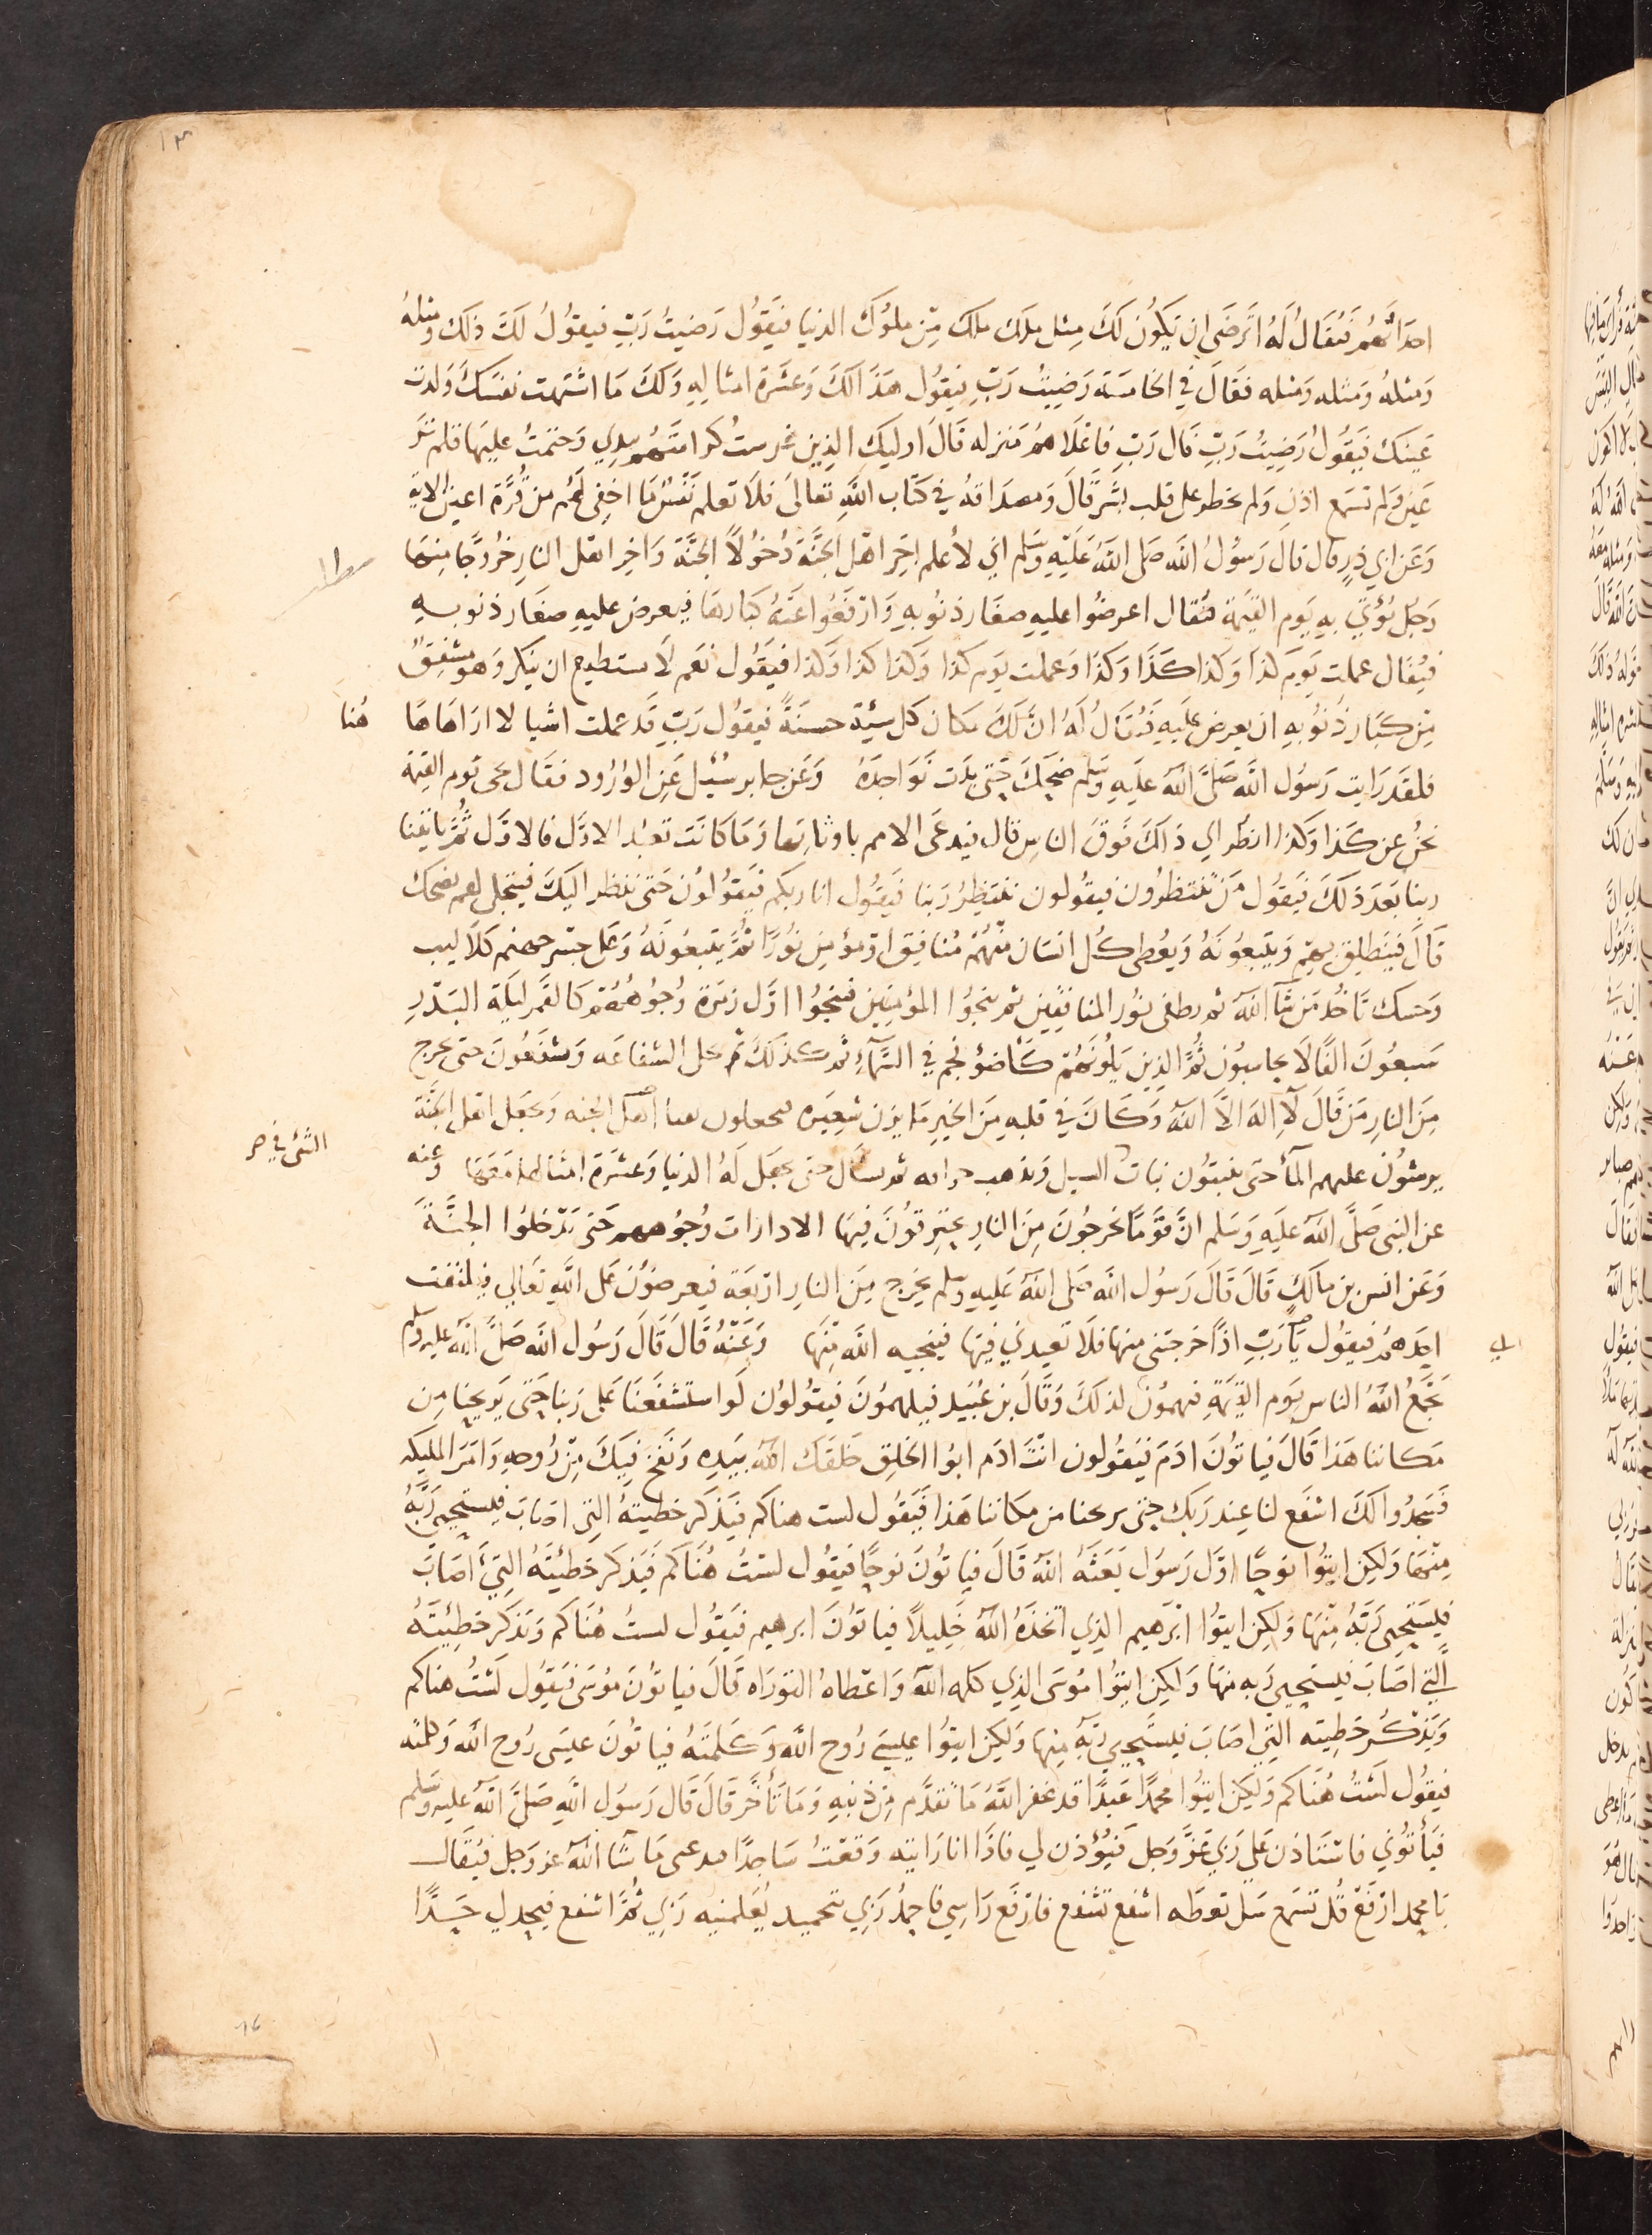 ١٣
اخذاتهم فيقال له اترضى ان يكون لك مثل ملك ملك من ملوك الدنيا فيقول رضيت رب فيقول لك ذلك ومثله
ومثله ومثله ومثله فقال في الخامسة رضيت رب فيقول هذا لك وعشرة امثاله ولك ما اشتهت نفسك ولدت
عينك فيقول رضيت رب قال رب فاعلاهم منزله قال اوليك الذين غرست كرامتهم بيدي وختمت عليها فلم تر
عين ولم تسمع اذن ولم يخطر على قلب بشر قال ومصداقه في كتاب الله تعالى فلا تعلم نفس ما اخفى لهم من قرة اعين الاية
وعن ابي ذر قال قال رسول الله صلى الله عليه وسلم اني لأعلم اخر اهل الجنة دخولاً الجنة واخر اهل النار خروجا منها
رجل يؤتى به يوم القيمة فيقال اعرضوا عليه صغار ذنوبه وارفعوا عنه كبارها فيعرض عليه صغار ذنوبه
فيقال عملت يوم كذا وكذا كذا وكذا وعملت يوم كذا وكذا كذا وكذا فيقول نعم لا يستطيع ان ينكر وهو مشفق
من كبار ذنوبه ان يعرض عليه فيقال له ان لك مكان كل سيئة حسنة فيقول رب قد عملت اشيا لا اراها ها
هنا
فلقد رايت رسول الله صلى الله عليه وسلم ضحك حتى بدت نواجده وعن جابر سئيل عن الورود فقال نجى يوم القيمة
نحن عن كذا وكذا انظر اي ذلك فوق الناس قال فيدعى الامم باوثانها وما كانت تعبد الاول فالاول ثم ياتينا
ربنا بعد ذلك فيقول من تنتظرون فيقولون ننتظر ربنا فيقول انا ربكم فيقولون حتى ننظر اليك فيتجلى لهم يضحك
قال فينطلق بهم ويتبعونه ويعطى كل انسان منهم منافق او مؤمن نورا ثم يتبعونه وعلى جسر جهنم كلاليب
وحسك تاخذ من شآ الله ثم يطفى نور المنافقين ثم ينجوا المؤمنين فينجوا اول زمرة وجوههم كالقمر ليلة البدر
سبعون الفا لا يحاسبون ثم الذين يلونهم كأضؤ نجم في السماء ثم كذلك ثم تحل الشفاعه ويشفعون حتى يخرج
من النار من قال لا اله الا الله وكان في قلبه من الخير ما يزن شعيره فيجعلون بفنا اهل الجنه ويجعل اهل الجنة
يرشون عليهم المآ حتى ينبتون نبات السيل ويذهب حراقه ثم يسال حتى يجعل له الدنيا وعشرة امثالها معها وعنه
الشئ في ص
عن النبي صلى الله عليه وسلم ان قوما يخرجون من النار يحترقون فيها الا دارات وجوههم حتى يدخلوا الجنة
وعن انس بن مالك قال قال رسول الله صلى الله عليه وسلم يخرج من النار اربعة فيعرضون على الله تعالي فيلتفت
احدهم فيقول يا رب اذا خرجتني منها فلا تعيدني فيها فينجيه الله منها وعنه قال قال رسول الله صلى الله عليه وسلم
يجمع الله الناس يوم القيمة فيهمون لذلك وقال بن عبيد فيلهمون فيقولون لو استشفعنا على ربنا حتى يريحنا من
مكاننا هذا قال فياتون ادم فيقولون انت ادم ابوا الخلق خلقك الله بيده ونفخ فيك من روحه وامر المليكه
فسجدوا لك اشفع لنا عند ربك حتى يريحنا من مكاننا هذا فيقول لست هناكم فيذكر خطيته التي اصاب فيستحيى ربه
منها ولكن ايتوا نوحا اول رسول بعثه الله قال فياتون نوحا فيقول لست هناكم فيذكر خطيئته التي اصاب
فيستحيى ربه منها ولكن ايتوا ابرهيم الذي اتخذه الله خليلا فياتون ابرهيم فيقول لست هناكم ويذكر خطيئته
التي اصاب فيستحيي ربه منها ولكن ايتوا موسى الذي كلمه الله واعطاه التوراه قال فياتون موسى فيقول لست هناكم
ويذكر خطيته التي اصاب فيستحيي ربه منها ولكن ايتوا عيسى روح الله وكلمته فياتون عيسى روح الله وكلمته
فيقول لست هناكم ولكن ايتوا محمدا عبدا قد غفر الله ما تقدم من ذنبه وما تأخر قال قال رسول الله صلى الله عليه وسلم
فيأتوني فاستاذن على ربي عز وجل فيؤذن لي فاذا انا رايته وقعت ساجدا فيدعنى ما شآ الله عز وجل فيقال
يا محمد ارفع قل تسمع سل تعطه اشفع تشفع فارفع راسي فاحمد ربي بتحميد يعلمنيه ربي ثم اشفع فيحد لي حدا